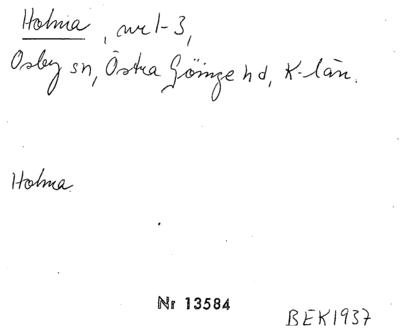 Holma, nr 1-3,
Osby sn, Östra Göinge hd, K-län.
Holma.
Nr 13584
BEK1937